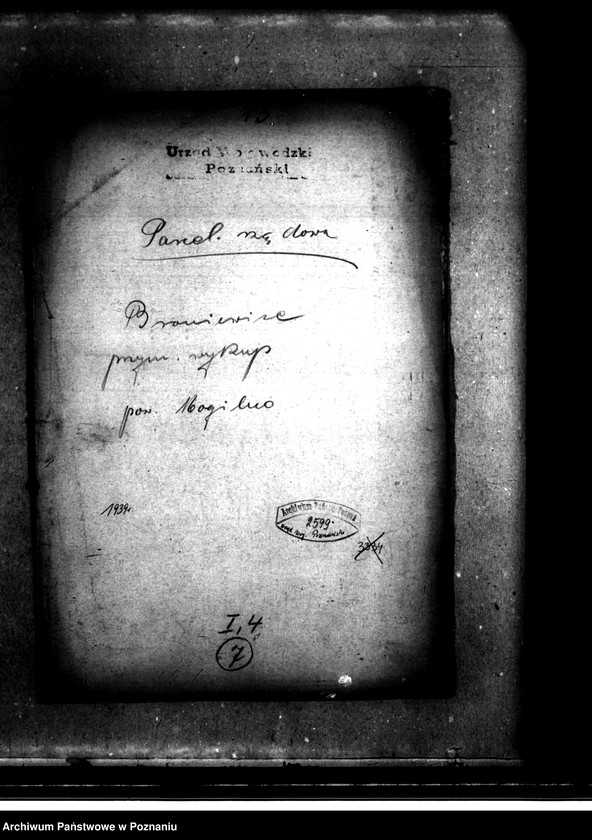 Urząd Wojewódzki
Poznański
Parcel. rządowa
Broniewice
przym. wykup
pow. Mogilno
1939r.
Archiwum
2599.
Urząd Woj. Poznański
3334
I, 4
7
Archiwum Państwowe w Poznaniu